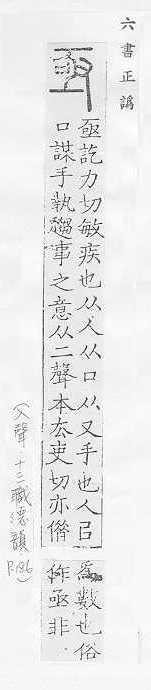 六書正譌
亟
亟訖力切敏疾也从人从口从又手也人㠯
口謀手執趨事之意从二聲本厺吏切亦偺
爲數也俗
作亟非
(入聲·十二職德韻
P.186)